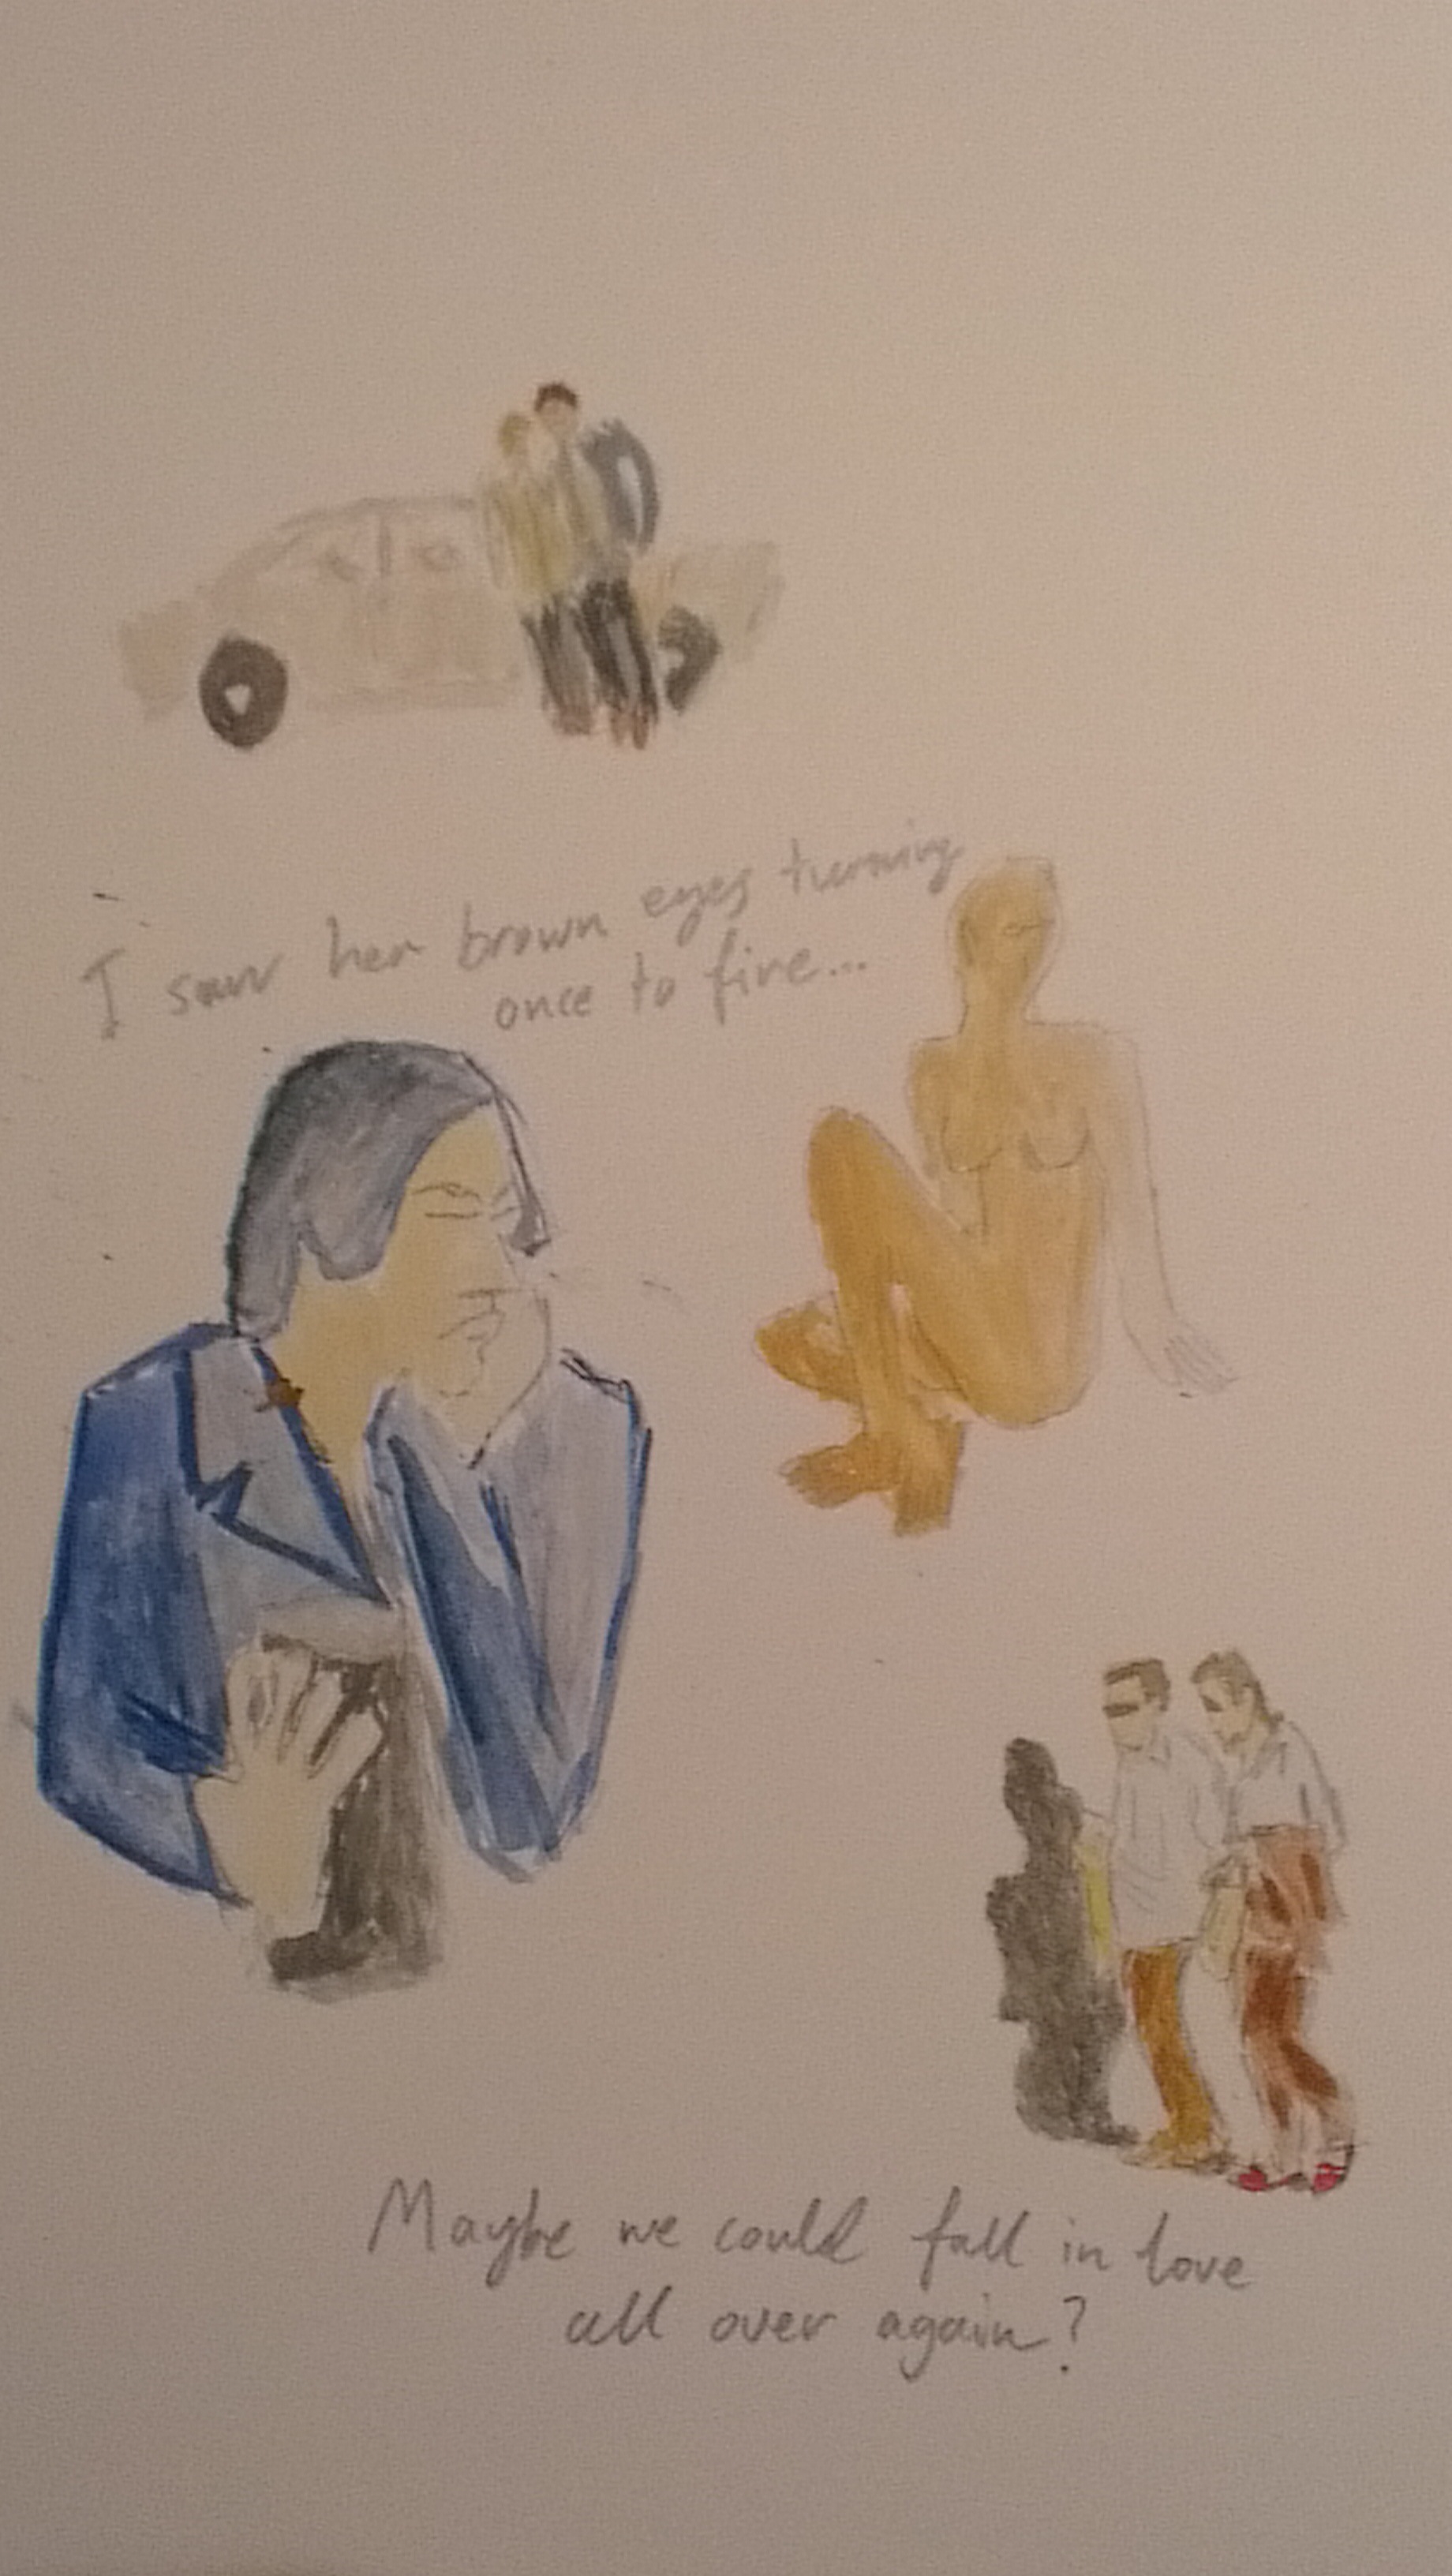 I saw her brown eyes turning
once to fire...
Maybe we could fall in love
all over again?